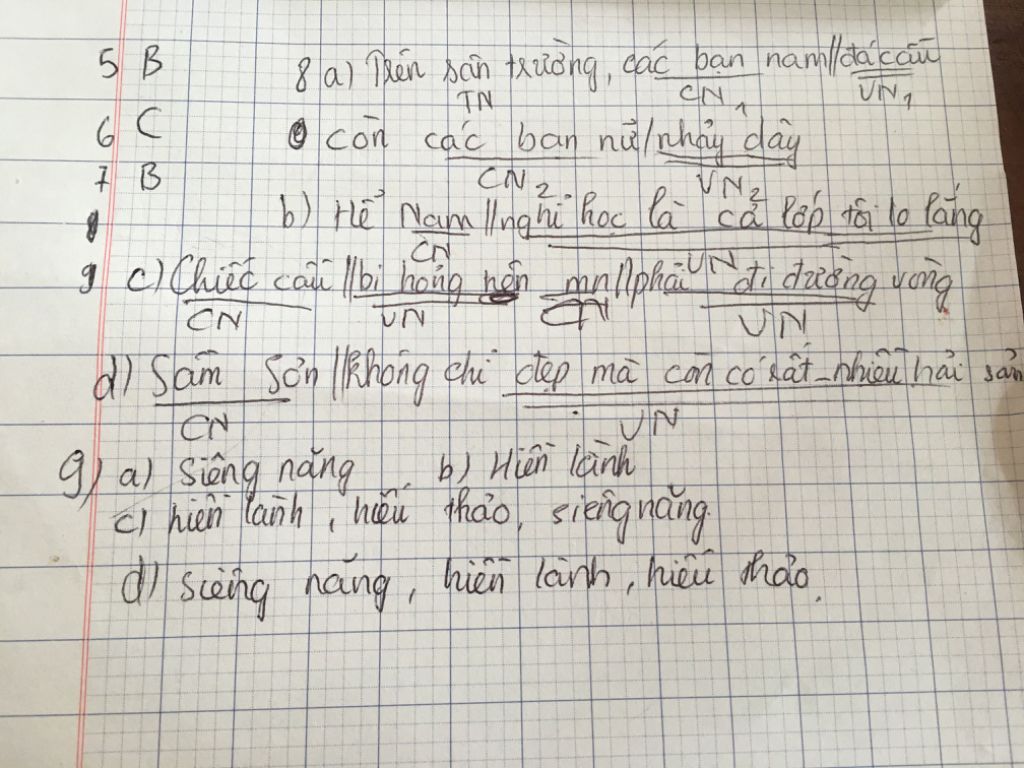 5 B 8 a) Trên sân trường, các bạn nam//đá cầu
TN CN1 VN1
6 C còn các bạn nữ//nhảy dây
7 B CN2 VN2
b) Hễ Nam//nghỉ học là cả lớp tôi lo lắng
CN VN
c) Chiếc cầu//bị hỏng nên mn//phải đi đường vòng
CN VN CN VN
d) Sầm Sơn//không chỉ đẹp mà còn có rất nhiều hải sản
CN VN
9) a) siêng năng b) Hiền lành
c) hiền lành, hiếu thảo, siêng năng.
d) siêng năng, hiền lành, hiếu thảo.